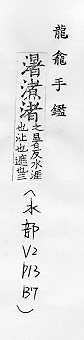 龍龕手鑑
渚㵭渚
之呂反水涯
也沚也遮也三
(水部V2
P13
B7)